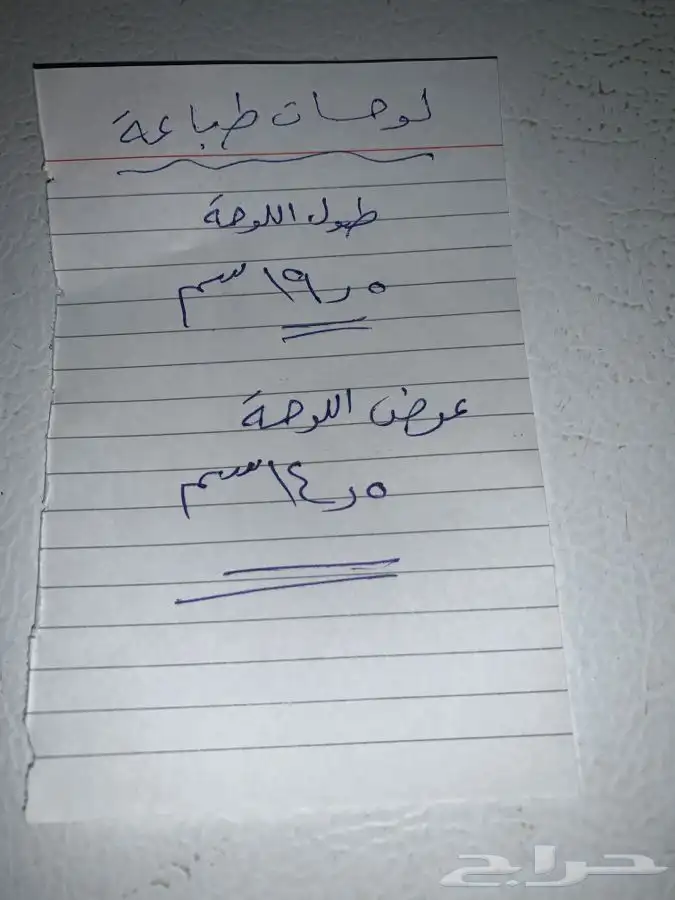 لوحات طباعة
طول اللوحة
١٩٫٥ سم
عرض اللوحة
١٤٫٥ سم
حراج